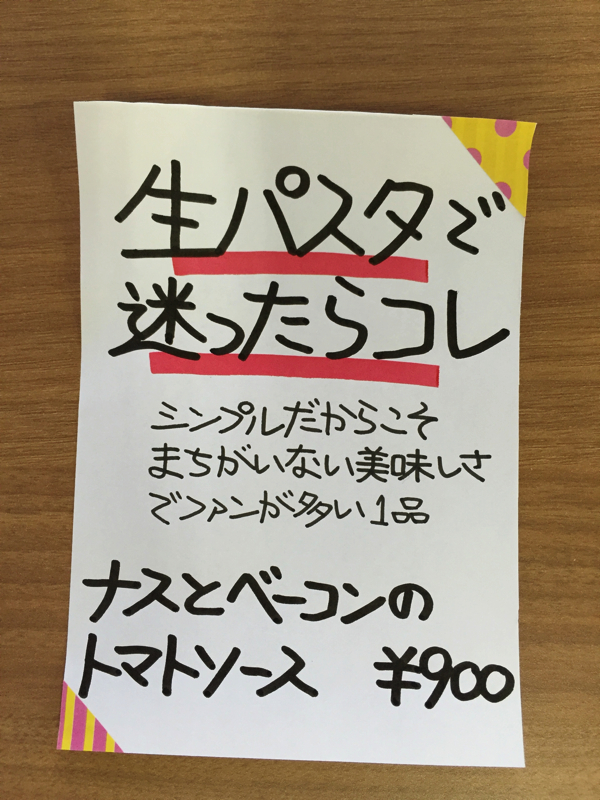 生パスタで
迷ったらコレ
シンプルだからこそ
まちがいない美味しさ
でファンが多い1品
ナスとベーコンの
トマトソース ¥900